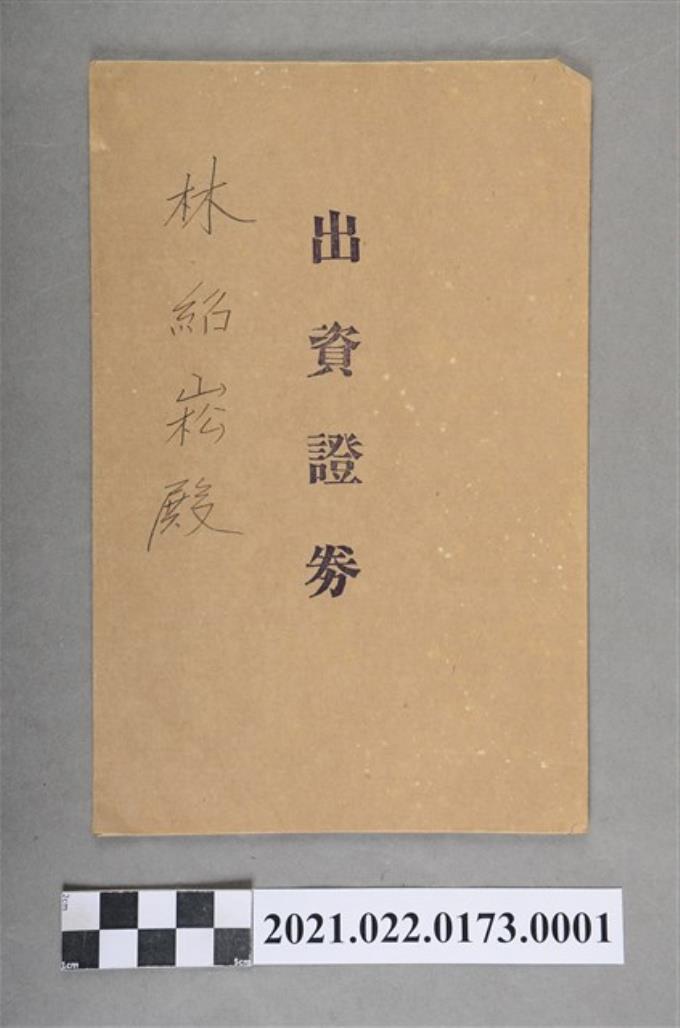 出資證券
林紹崧殿
2cm
1cm
5cm
2021.022.0173.0001